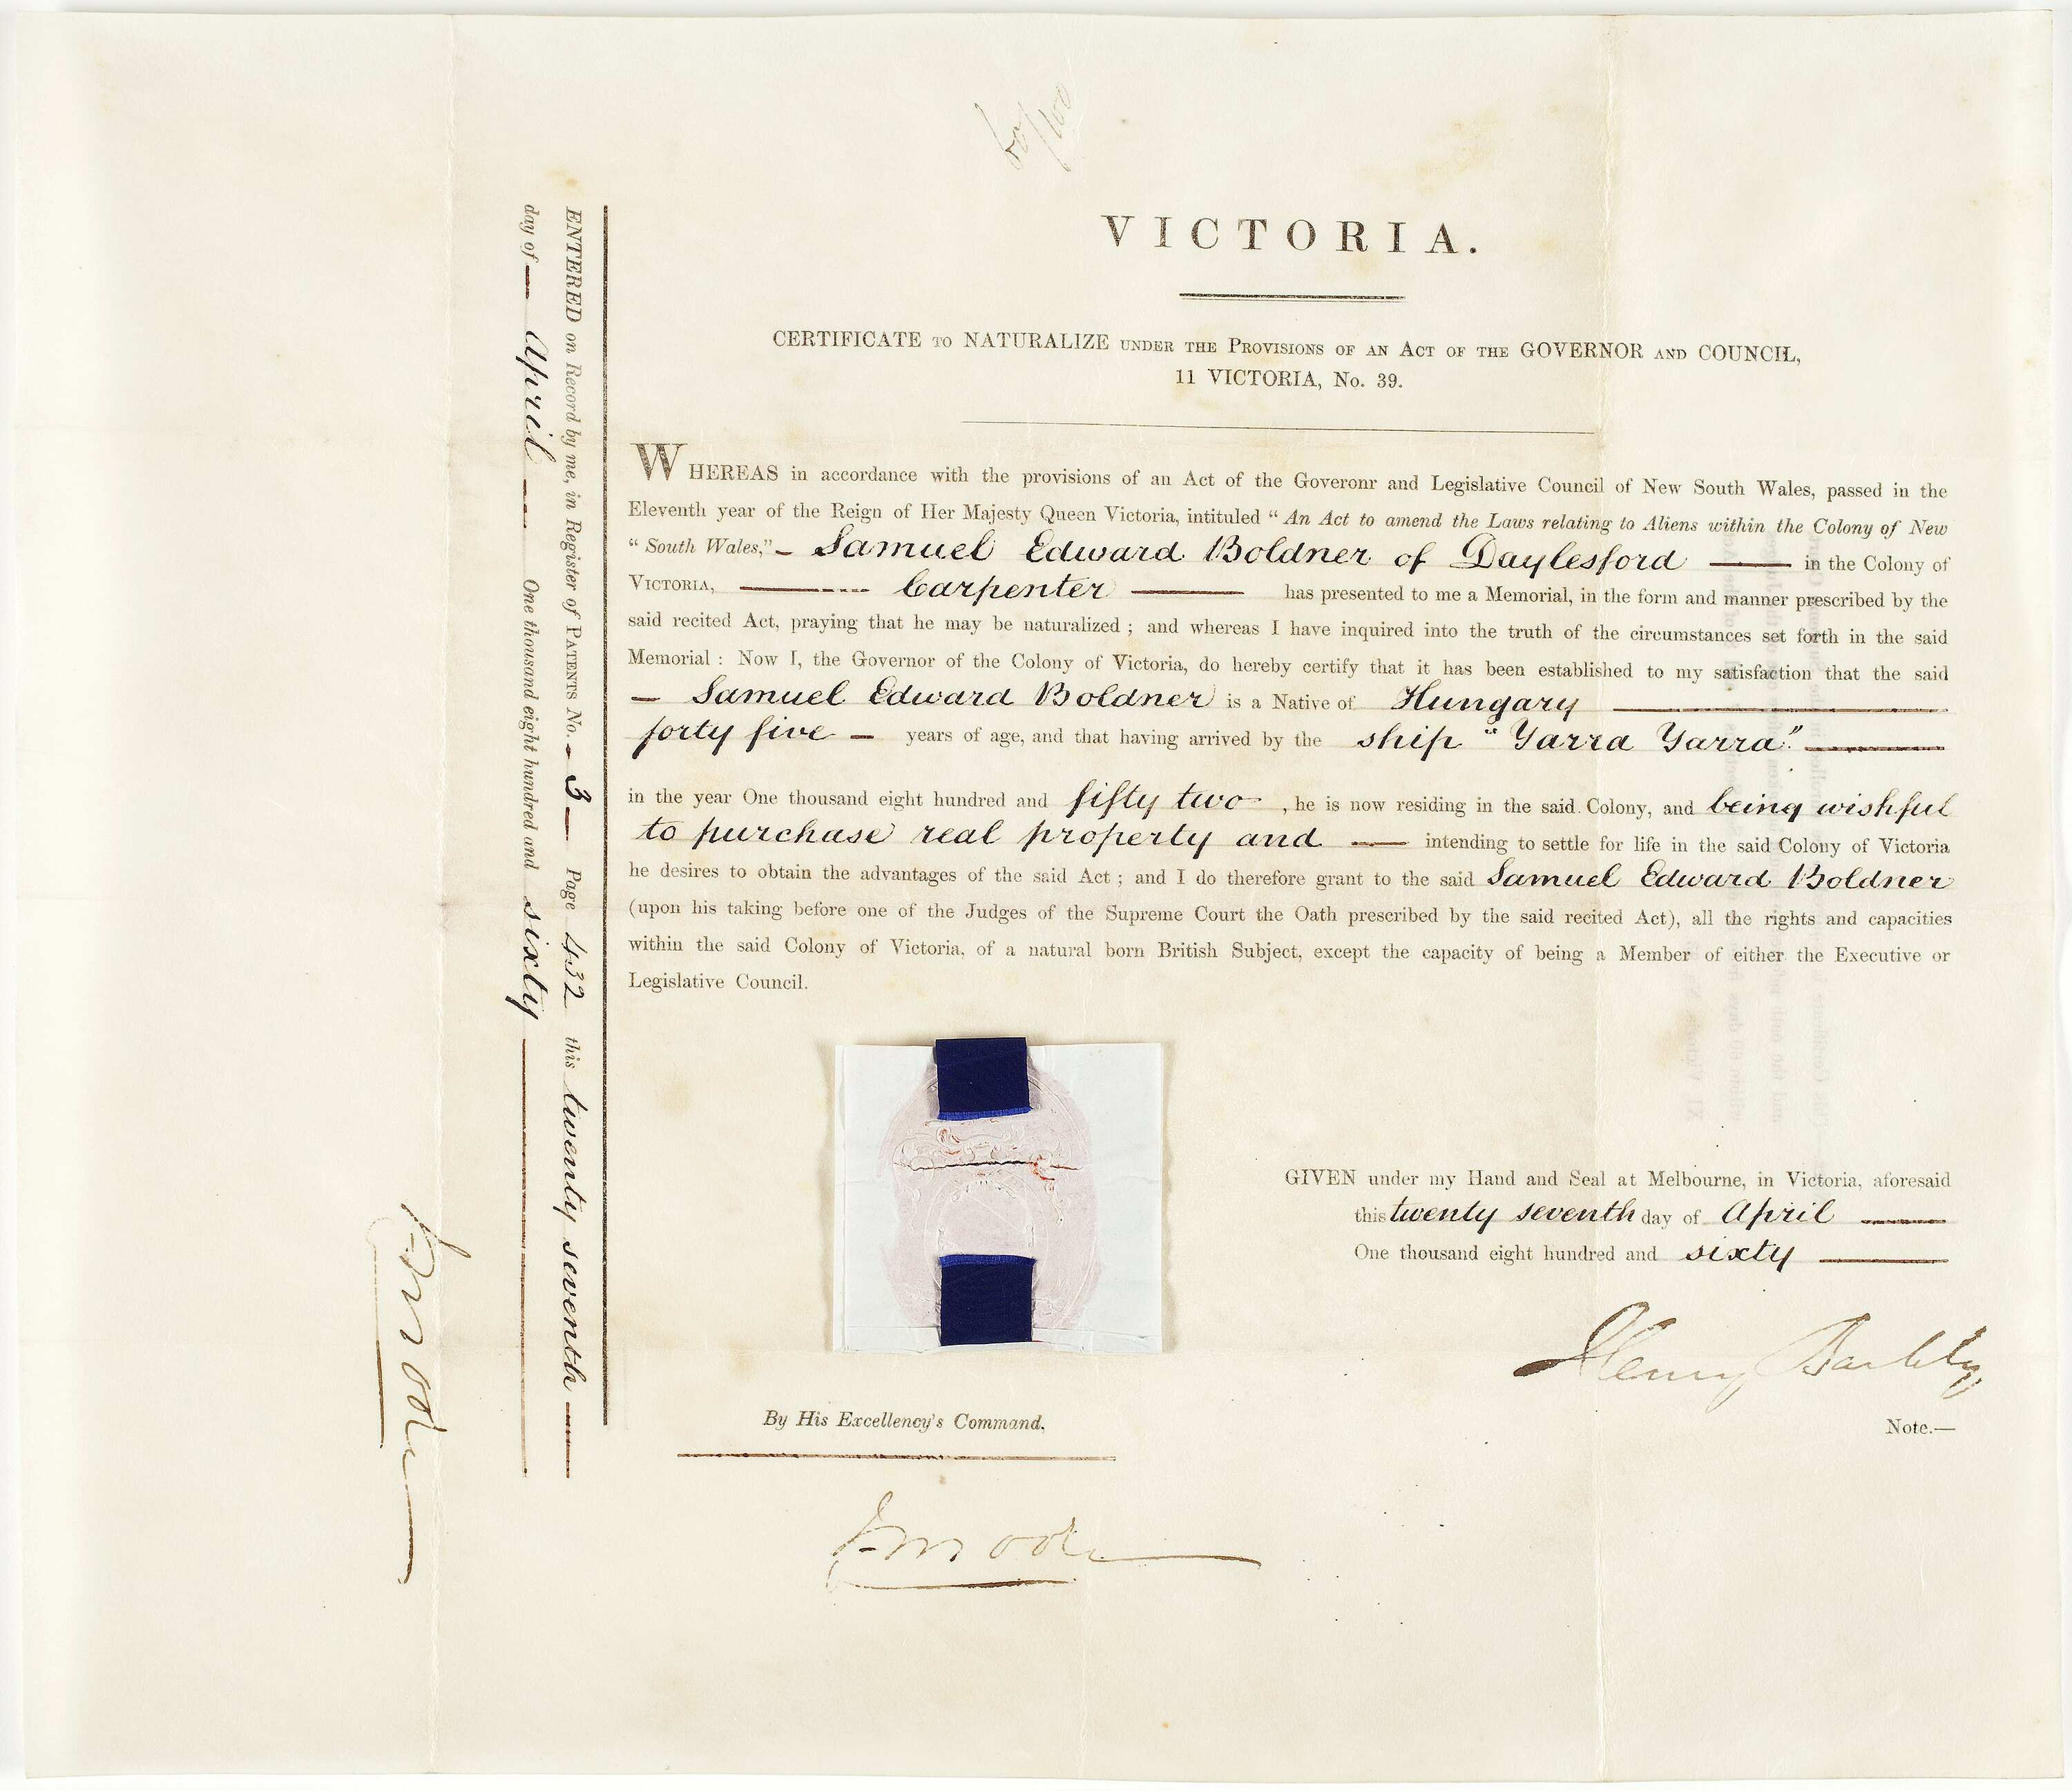 VICTORIA.
CERTIFICATE TO NATURALIZE UNDER THE PROVISIONS OF AN ACT OF THE GOVERNOR AND COUNCIL,
11 VICTORIA, No. 39.
WHEREAS in accordance with the provisions of an Act of the Goveronr and Legislative Council of New South Wales, passed in the
Eleventh year of the Reign of Her Majesty Queen Victoria, intituled "An Act to amend the Laws relating to Aliens within the Colony of New
"South Wales,"— Samuel Edward Boldner of Daylesford — in the Colony of
VICTORIA, — Carpenter — has presented to me a Memorial, in the form and manner prescribed by the
said recited Act, praying that he may be naturalized ; and whereas I have inquired into the truth of the circumstances set forth in the said
Memorial : Now I, the Governor of the Colony of Victoria, do hereby certify that it has been established to my satisfaction that the said
— Samuel Edward Boldner is a Native of Hungary —
forty five — years of age, and that having arrived by the ship "Yarra Yarra" —
in the year One thousand eight hundred and fifty two , he is now residing in the said Colony, and being wishful
to purchase real property and — intending to settle for life in the said Colony of Victoria
he desires to obtain the advantages of the said Act ; and I do therefore grant to the said Samuel Edward Boldner
(upon his taking before one of the Judges of the Supreme Court the Oath prescribed by the said recited Act), all the rights and capacities
within the said Colony of Victoria, of a natural born British Subject, except the capacity of being a Member of either the Executive or
Legislative Council.
GIVEN under my Hand and Seal at Melbourne, in Victoria, aforesaid
this twenty seventh day of April —
One thousand eight hundred and sixty —
Henry Barkly
Note.—
By His Excellency's Command,
ENTERED on Record by me, in Register of PATENTS No. — 3 — Page 432 this twenty seventh —
day of — April — One thousand eight hundred and sixty —